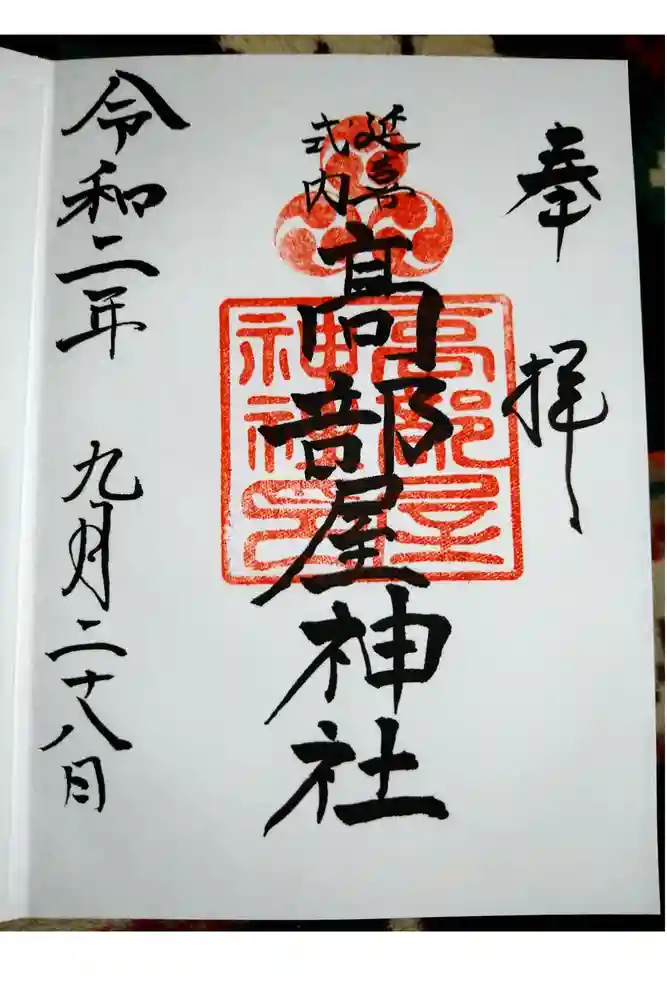 奉拝
延喜
式内
髙部屋神社
高部屋
神社印
令和二年 九月二十八日